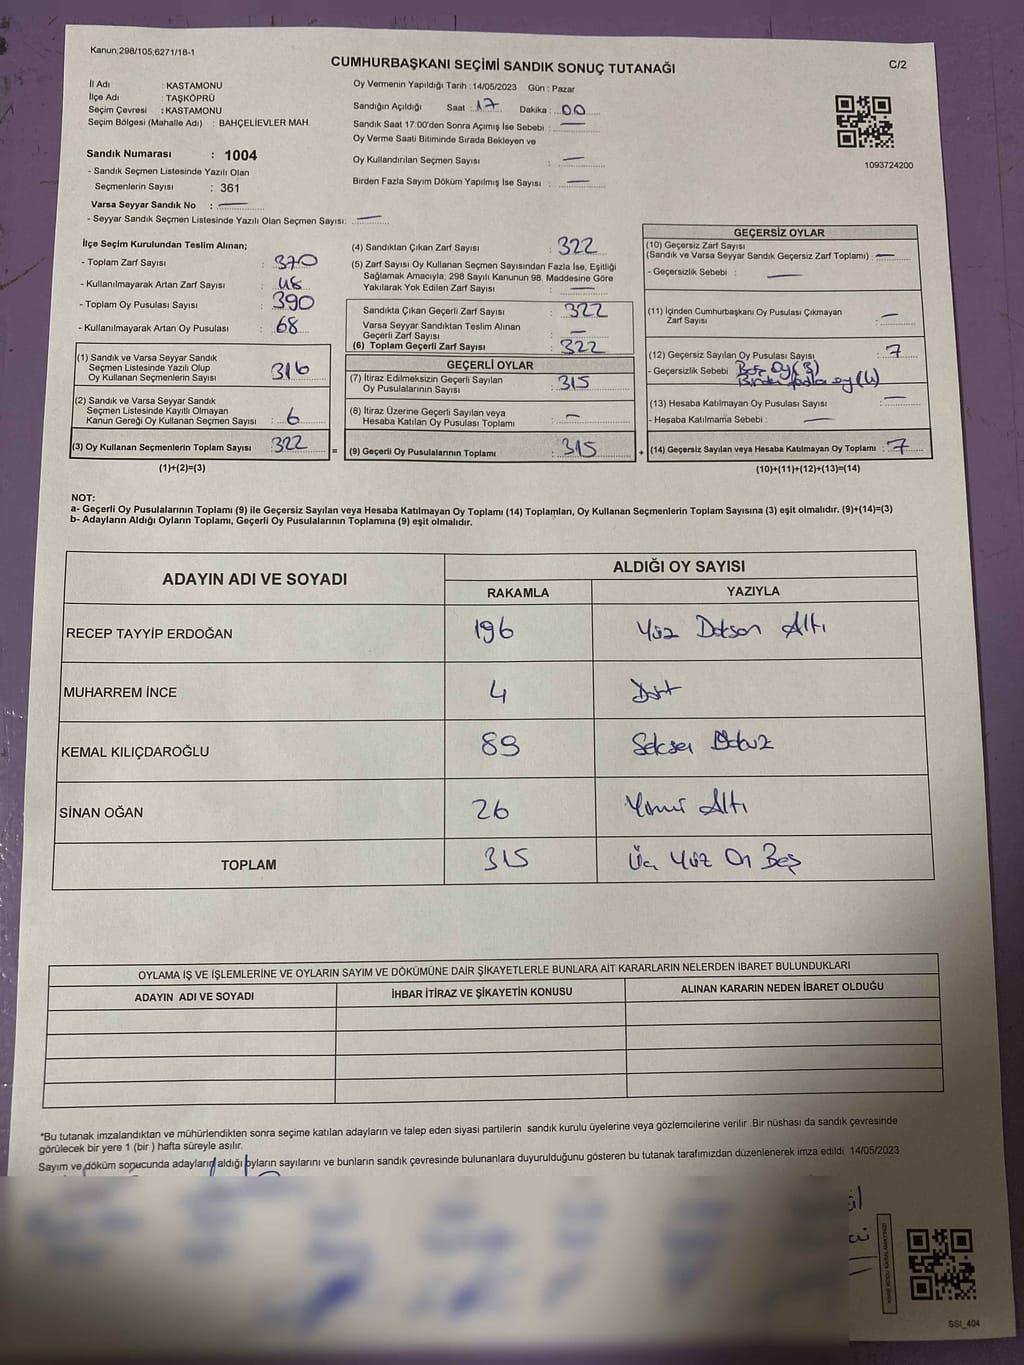 Kanun;298/105;6271/18-1
CUMHURBAŞKANI SEÇİMİ SANDIK SONUÇ TUTANAĞI
C/2
İl Adı : KASTAMONU
İlçe Adı : TAŞKÖPRÜ
Seçim Çevresi : KASTAMONU
Seçim Bölgesi (Mahalle Adı) : BAHÇELİEVLER MAH.
Sandık Numarası : 1004
- Sandık Seçmen Listesinde Yazılı Olan
Seçmenlerin Sayısı : 361
Varsa Seyyar Sandık No : —
- Seyyar Sandık Seçmen Listesinde Yazılı Olan Seçmen Sayısı: —
Oy Vermenin Yapıldığı Tarih : 14/05/2023 Gün : Pazar
Sandığın Açıldığı Saat : 17 Dakika : 00
Sandık Saat 17:00'den Sonra Açımış İse Sebebi : —
Oy Verme Saati Bitiminde Sırada Bekleyen ve
Oy Kullandırılan Seçmen Sayısı : —
Birden Fazla Sayım Döküm Yapılmış İse Sayısı : —
1093724200
İlçe Seçim Kurulundan Teslim Alınan;
- Toplam Zarf Sayısı : 370
- Kullanılmayarak Artan Zarf Sayısı : 48
- Toplam Oy Pusulası Sayısı : 390
- Kullanılmayarak Artan Oy Pusulası : 68
(1) Sandık ve Varsa Seyyar Sandık
Seçmen Listesinde Yazılı Olup
Oy Kullanan Seçmenlerin Sayısı : 316
(2) Sandık ve Varsa Seyyar Sandık
Seçmen Listesinde Kayıtlı Olmayan
Kanun Gereği Oy Kullanan Seçmen Sayısı : 6
(3) Oy Kullanan Seçmenlerin Toplam Sayısı : 322
(1)+(2)=(3)
(4) Sandıktan Çıkan Zarf Sayısı : 322
(5) Zarf Sayısı Oy Kullanan Seçmen Sayısından Fazla İse, Eşitliği
Sağlamak Amacıyla; 298 Sayılı Kanunun 98. Maddesine Göre
Yakılarak Yok Edilen Zarf Sayısı : —
Sandıkta Çıkan Geçerli Zarf Sayısı : 322
Varsa Seyyar Sandıktan Teslim Alınan
Geçerli Zarf Sayısı : —
(6) Toplam Geçerli Zarf Sayısı : 322
GEÇERLİ OYLAR
(7) İtiraz Edilmeksizin Geçerli Sayılan
Oy Pusulalarının Sayısı : 315
(8) İtiraz Üzerine Geçerli Sayılan veya
Hesaba Katılan Oy Pusulası Toplamı : —
= (9) Geçerli Oy Pusulalarının Toplamı : 315
GEÇERSİZ OYLAR
(10) Geçersiz Zarf Sayısı
(Sandık ve Varsa Seyyar Sandık Geçersiz Zarf Toplamı) : —
- Geçersizlik Sebebi : —
(11) İçinden Cumhurbaşkanı Oy Pusulası Çıkmayan
Zarf Sayısı : —
(12) Geçersiz Sayılan Oy Pusulası Sayısı : 7
- Geçersizlik Sebebi : Boş Oy (3)
Birden fazla oy (4)
(13) Hesaba Katılmayan Oy Pusulası Sayısı : —
- Hesaba Katılmama Sebebi : —
+ (14) Geçersiz Sayılan veya Hesaba Katılmayan Oy Toplamı : 7
(10)+(11)+(12)+(13)=(14)
NOT:
a- Geçerli Oy Pusulalarının Toplamı (9) ile Geçersiz Sayılan veya Hesaba Katılmayan Oy Toplamı (14) Toplamları, Oy Kullanan Seçmenlerin Toplam Sayısına (3) eşit olmalıdır. (9)+(14)=(3)
b- Adayların Aldığı Oyların Toplamı, Geçerli Oy Pusulalarının Toplamına (9) eşit olmalıdır.
ADAYIN ADI VE SOYADI
ALDIĞI OY SAYISI
RAKAMLA YAZIYLA
RECEP TAYYİP ERDOĞAN 196 Yüz Doksan Altı
MUHARREM İNCE 4 Dört
KEMAL KILIÇDAROĞLU 89 Seksen Dokuz
SİNAN OĞAN 26 Yirmi Altı
TOPLAM 315 Üç Yüz On Beş
OYLAMA İŞ VE İŞLEMLERİNE VE OYLARIN SAYIM VE DÖKÜMÜNE DAİR ŞİKAYETLERLE BUNLARA AİT KARARLARIN NELERDEN İBARET BULUNDUKLARI
ADAYIN ADI VE SOYADI İHBAR İTİRAZ VE ŞİKAYETİN KONUSU ALINAN KARARIN NEDEN İBARET OLDUĞU
*Bu tutanak imzalandıktan ve mühürlendikten sonra seçime katılan adayların ve talep eden siyasi partilerin sandık kurulu üyelerine veya gözlemcilerine verilir .Bir nüshası da sandık çevresinde
görülecek bir yere 1 (bir ) hafta süreyle asılır.
Sayım ve döküm sonucunda adayların aldığı oyların sayılarını ve bunların sandık çevresinde bulunanlara duyurulduğunu gösteren bu tutanak tarafımızdan düzenlenerek imza edildi. 14/05/2023
SSI_404